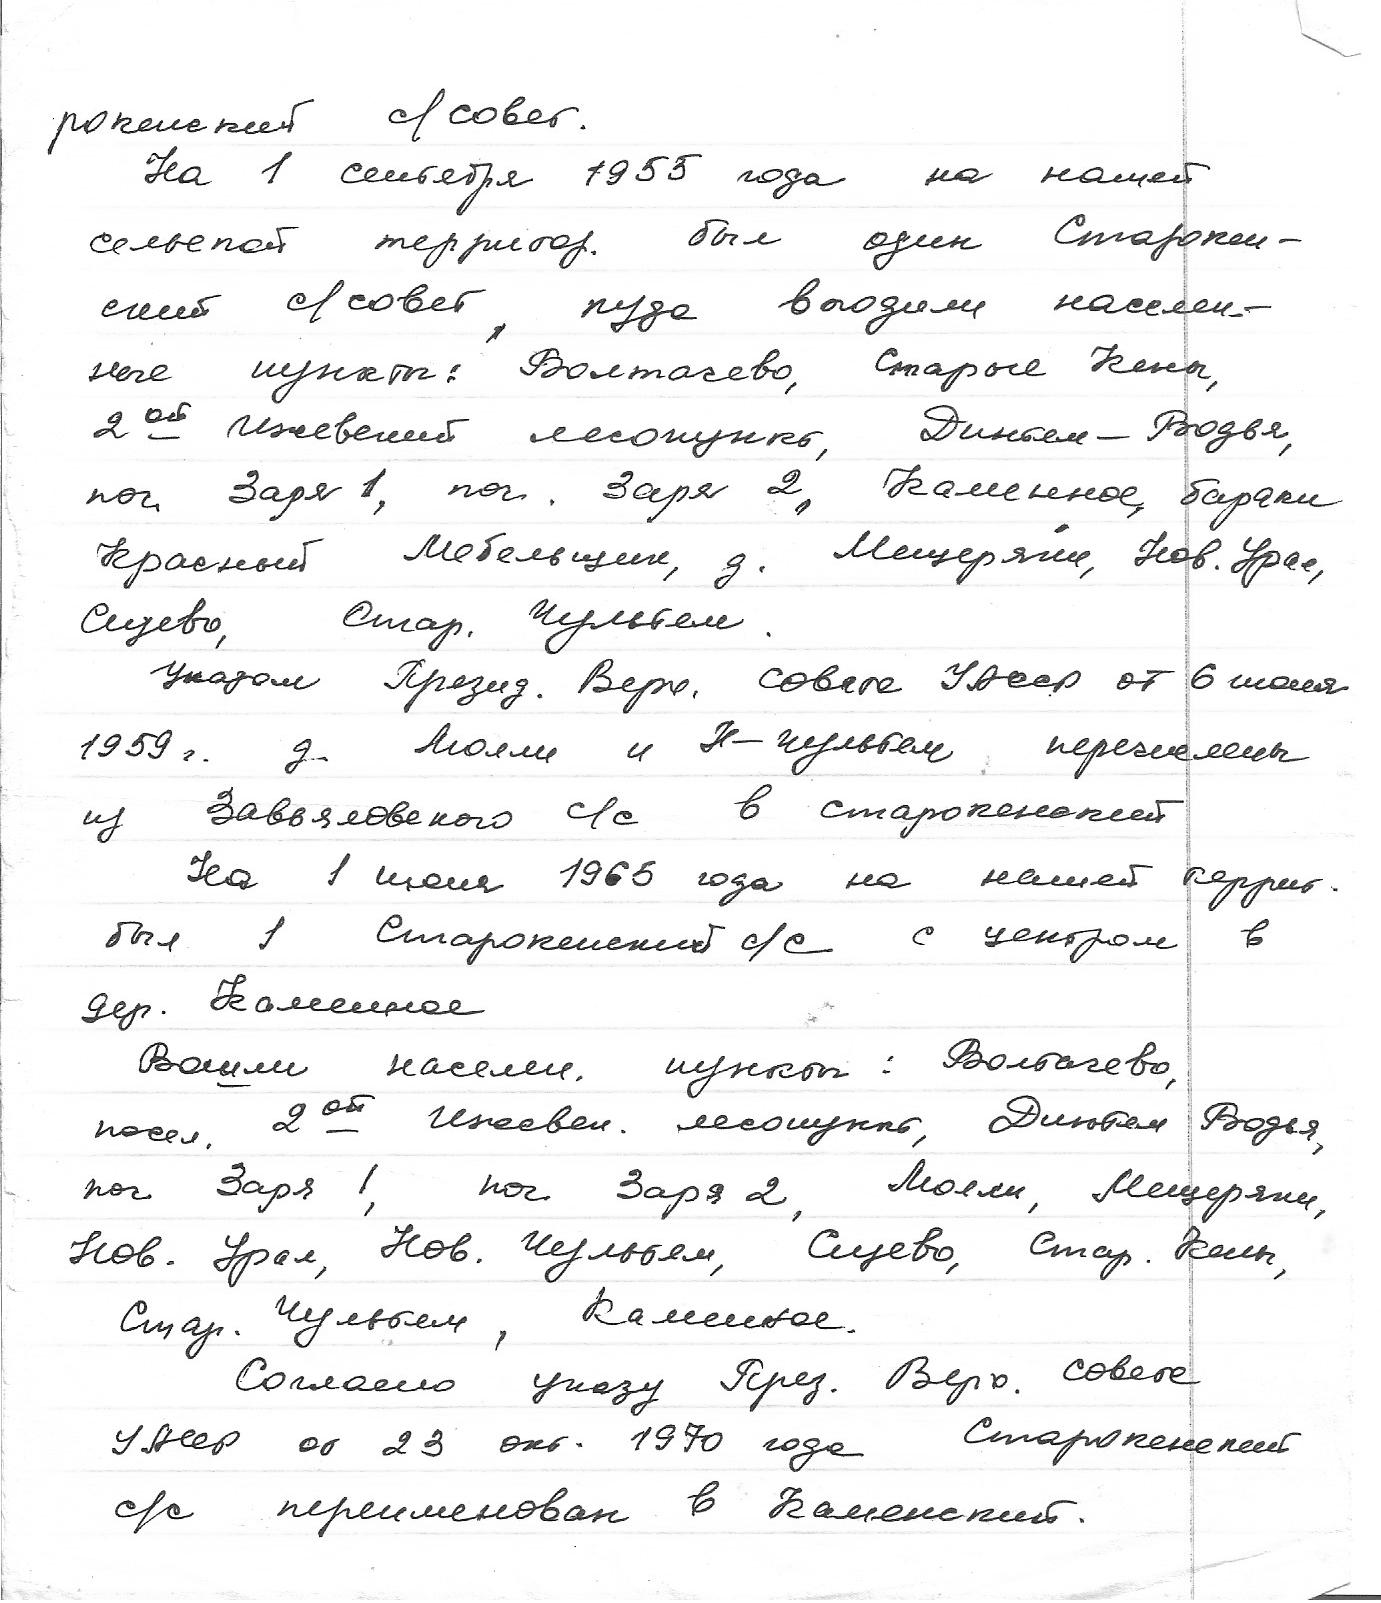 рокенский с/совет.
На 1 сентября 1955 года на нашей
сельской territор. был один Старокен-
ский с/совет, куда входили населен-
ные пункты: Болтачево, Старые Кены,
2ой Ижевский лесопункт, Динтем-Водья,
поч. Заря 1, поч. Заря 2, Каменное, бараки
Красный Мебельщик, д. Мещеряки, Нов. Урал,
Сизево, Стар. Чультем.
Указом Презид. Верх. Совета УАССР от 6 июля
1959 г. д. Люлли и Н-Чультем перечислены
из Завьяловского с/с в старокенский
На 1 июля 1965 года на нашей террит.
был 1 Старокенский с/с с центром в
дер. Каменное
Вошли населен. пункты: Болтачево,
посел. 2ой Ижевск. лесопункт, Динтем Водья,
поч. Заря 1, поч. Заря 2, Люлли, Мещеряки,
Нов. Урал, Нов. Чультем, Сизево, Стар. Кены,
Стар. Чультем, Каменное.
Согласно указу През. Верх. Совета
УАССР от 23 окт. 1970 года Старокенский
с/с переименован в Каменский.